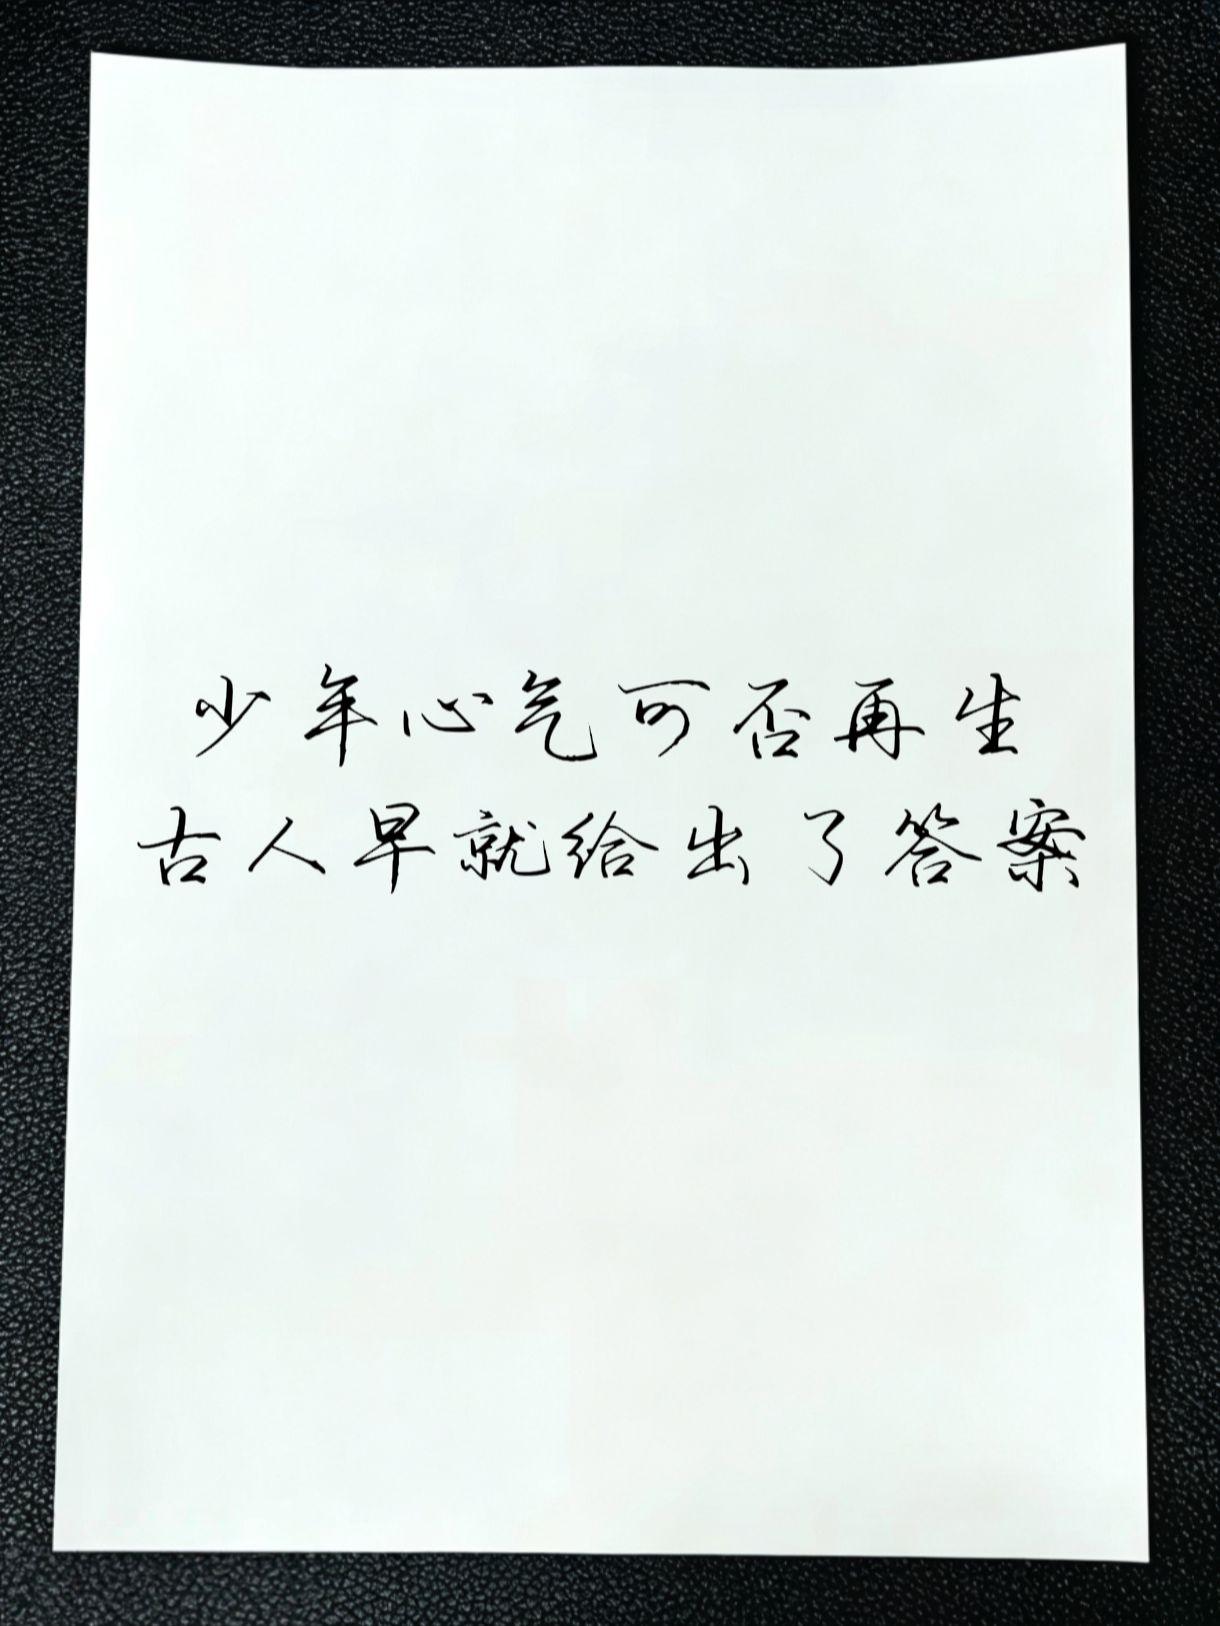 少年心气可否再生
古人早就给出了答案